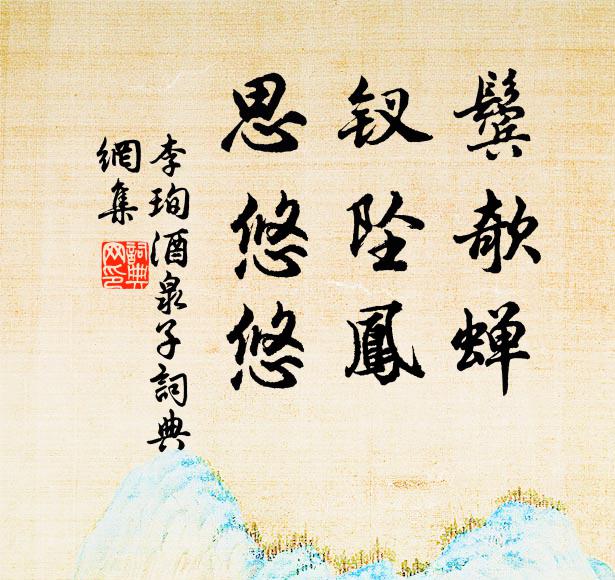 鬓欹蝉
钗坠鳳
思悠悠
李珣酒泉子詞典
網集
詞典
网印